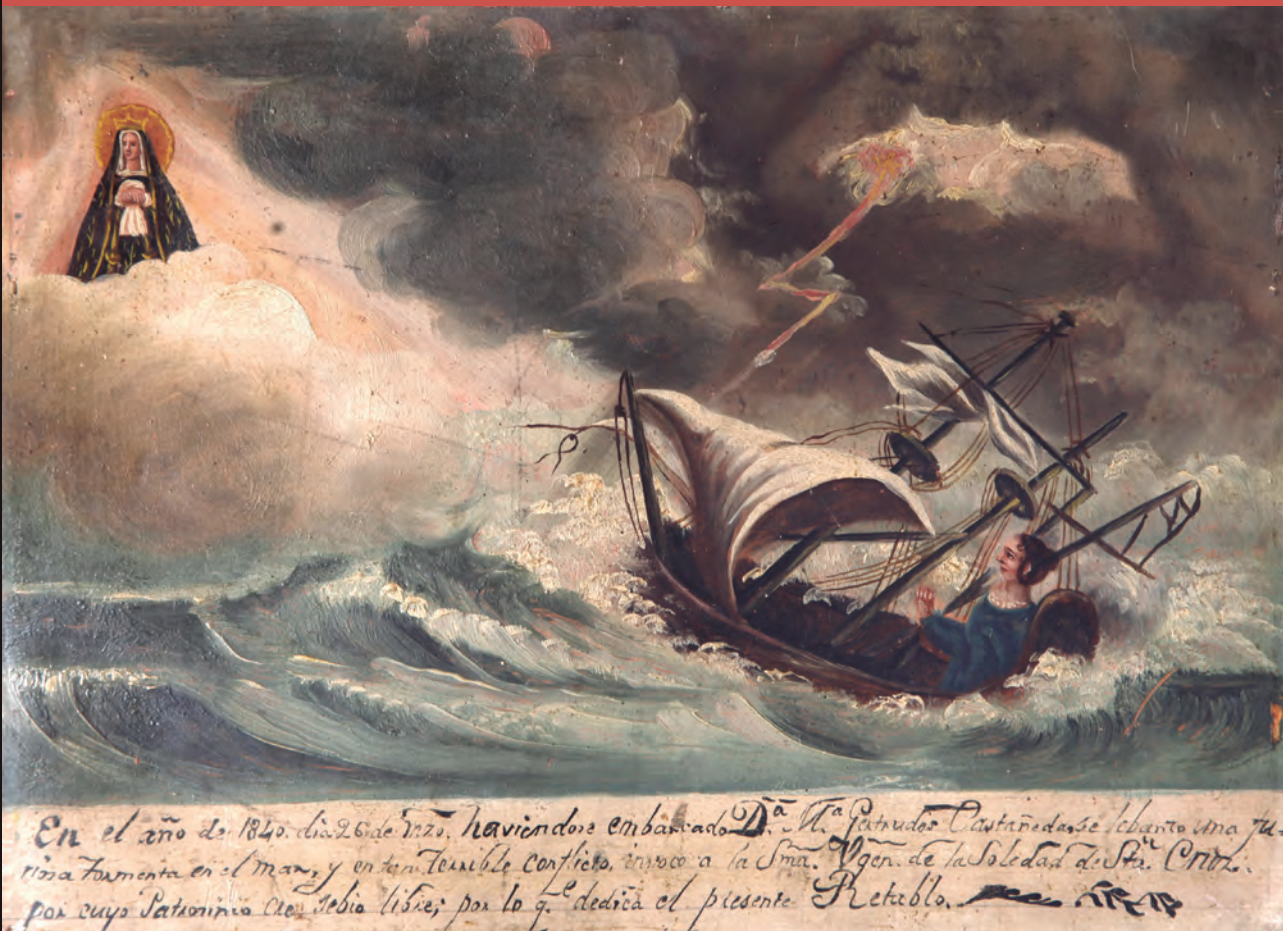 En el año de 1840. dia 26 de Mzo. haviendose embarcado D.ª M.ª Gertrudes Castañeda, se lebanto una fu
riosa tormenta en el mar, y en tan terrible conflicto, invoco a la Sma. Vgen. de la Soledad de Sta. Cruz.
por cuyo Patrocinio se vio libre; por lo q.e dedica el presente Retablo.